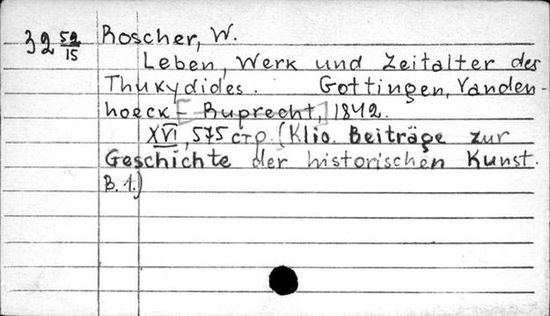 32 52/15
Roscher, W.
Leben, Werk und Zeitalter des
Thukydides. Gottingen, Vanden-
hoeck - Ruprecht, 1842.
XVI, 575 стр. (Klio. Beiträge zur
Geschichte der historischen Kunst.
B. 1.)